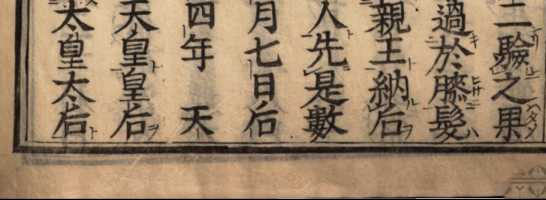 二驗之果
過於膝髮
親王納后
入先是數
月七日后
四年 天
天皇皇后
太皇太后